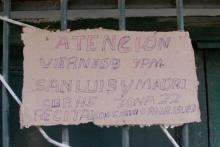 ATENCION
VIERNES 9 7PM.
SAN LUIS Y MADRI
SOBRE ZONA 22
RECITA